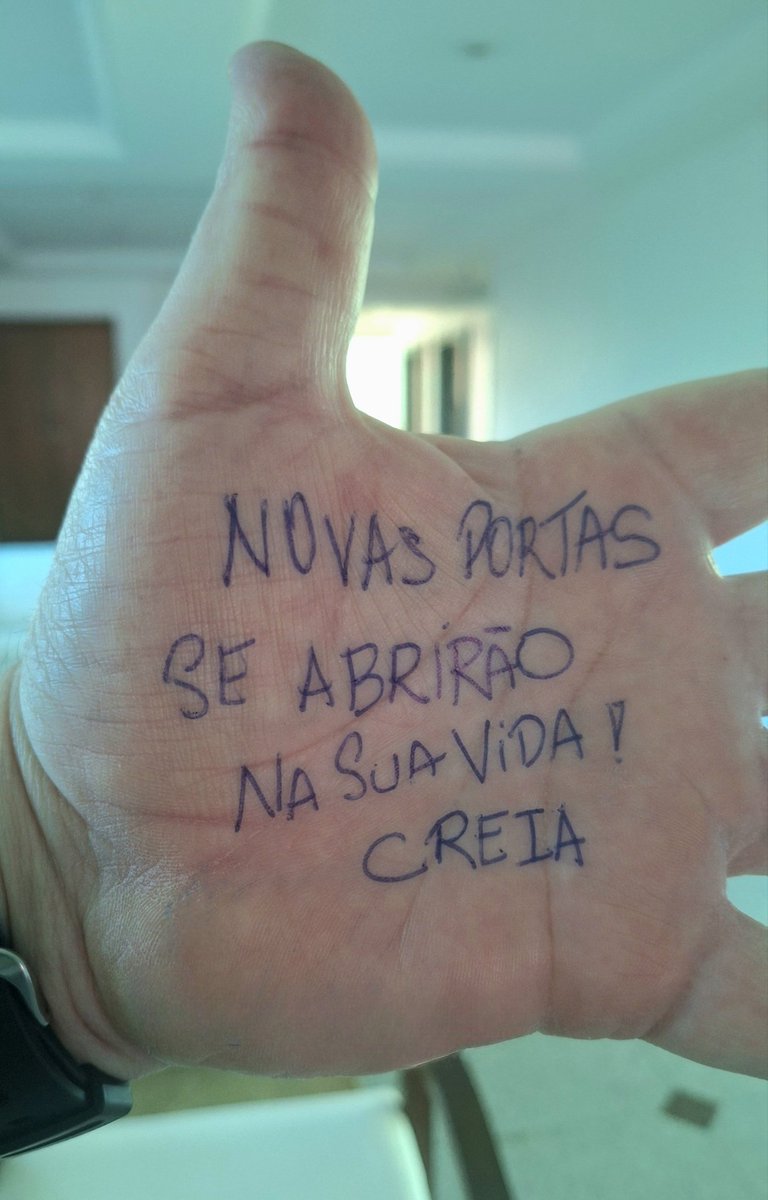 NOVAS PORTAS
SE ABRIRÃO
NA SUA VIDA!
CREIA